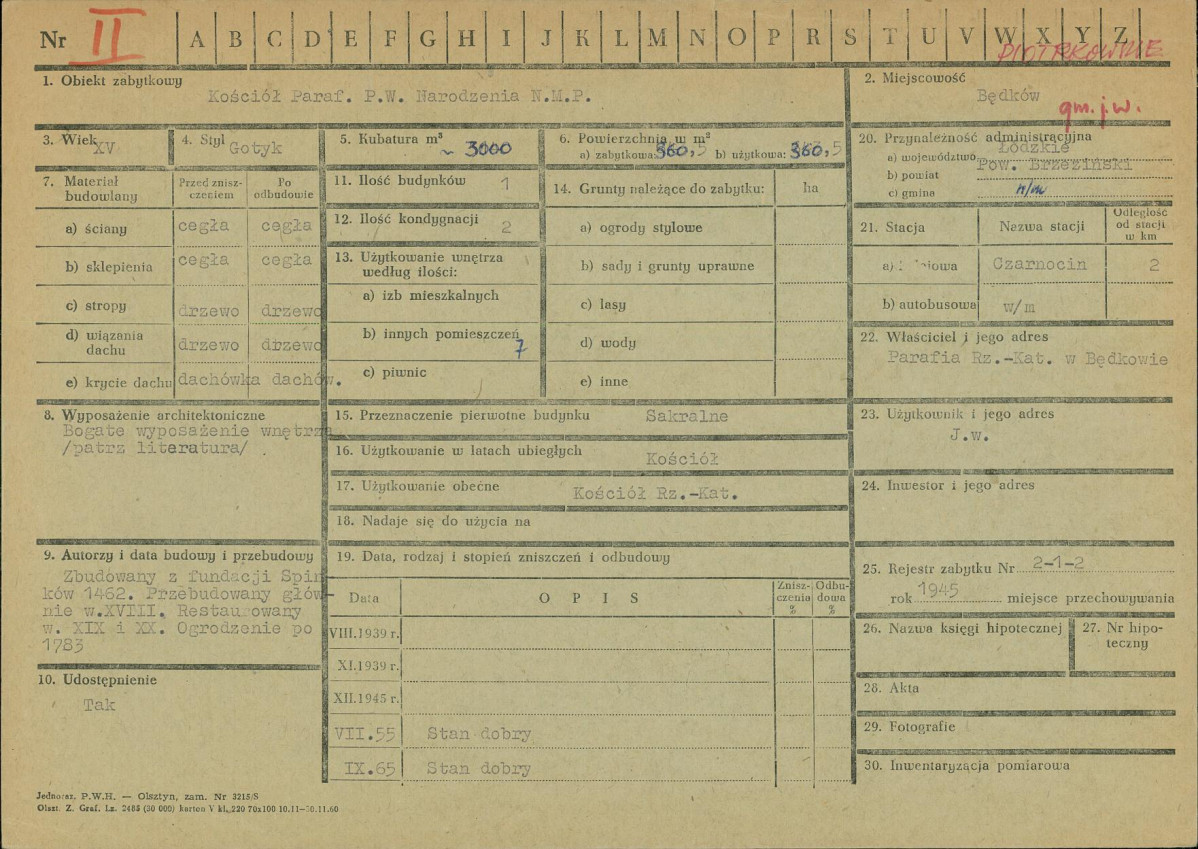 Nr II A B C D E F G H I J K L M N O P R S T U V W X Y Z
PIOTRKOWSKIE
1. Obiekt zabytkowy
Kościół Paraf. P.W. Narodzenia N.M.P.
2. Miejscowość
Będków
gm. j.w.
3. Wiek
XV
4. Styl
Gotyk
5. Kubatura m³
~ 3000
6. Powierzchnia w m²
a) zabytkowa: 360,5 b) użytkowa: 360,5
7. Materiał budowlany
Przed znisz-
czeniem
Po
odbudowie
a) ściany cegła cegła
b) sklepienia cegła cegła
c) stropy drzewo drzewo
d) wiązania
dachu drzewo drzewo
e) krycie dachu dachówka dachów.
8. Wyposażenie architektoniczne
Bogate wyposażenie wnętrza
/patrz literatura/ .
9. Autorzy i data budowy i przebudowy
Zbudowany z fundacji Spin
ków 1462. Przebudowany głów-
nie w.XVIII. Restaurowany
w. XIX i XX. Ogrodzenie po
1783
10. Udostępnienie
Tak
11. Ilość budynków 1
12. Ilość kondygnacji 2
13. Użytkowanie wnętrza
według ilości:
a) izb mieszkalnych
b) innych pomieszczeń
7
c) piwnic
14. Grunty należące do zabytku: ha
a) ogrody stylowe
b) sady i grunty uprawne
c) lasy
d) wody
e) inne
15. Przeznaczenie pierwotne budynku Sakralne
16. Użytkowanie w latach ubiegłych Kościół
17. Użytkowanie obecne Kościół Rz.-Kat.
18. Nadaje się do użycia na
19. Data, rodzaj i stopień zniszczeń i odbudowy
Data OPIS
Znisz-
czenia
%
Odbu-
dowa
%
VIII.1939 r.
XI.1939 r.
XII.1945 r.
VII.55 Stan dobry
IX.65 Stan dobry
20. Przynależność administracyjna
a) województwo Łódzkie
b) powiat Pow. Brzeziński
c) gmina w/m
21. Stacja Nazwa stacji
Odległość
od stacji
w km
a) Czarnocin 2
b) autobusowa w/m
22. Właściciel i jego adres
Parafia Rz.-Kat. w Będkowie
23. Użytkownik i jego adres
J.w.
24. Inwestor i jego adres
25. Rejestr zabytku Nr 2-1-2
rok 1945 miejsce przechowywania
26. Nazwa księgi hipotecznej
27. Nr hipo-
teczny
28. Akta
29. Fotografie
30. Inwentaryzacja pomiarowa
Jednoraz. P.W.H. — Olsztyn, zam. Nr 3215/S
Olszt. Z. Graf. Lz. 2485 (30 000) karton V kl. 220 70x100 10.11—30.11.60